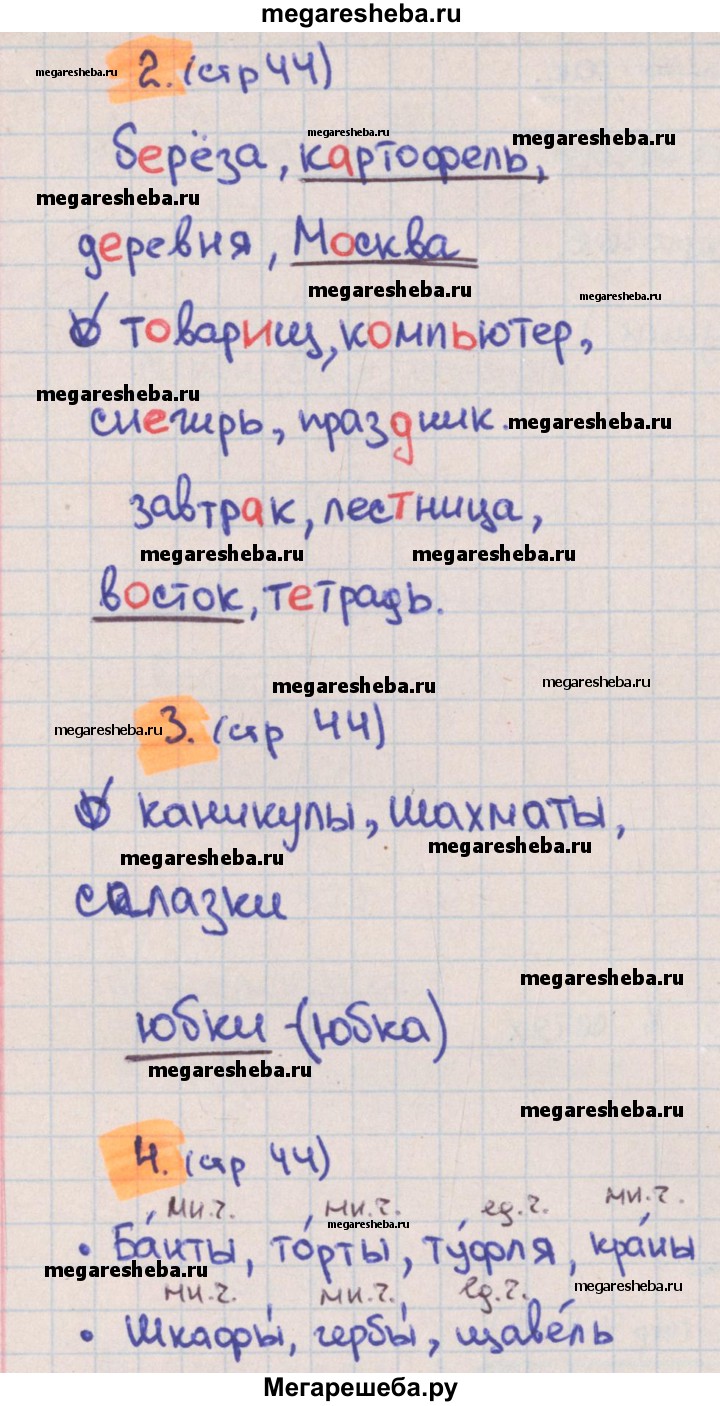 megaresheba.ru
megaresheba.ru 2. (стр 44)
megaresheba.ru megaresheba.ru
берёза, картофель,
megaresheba.ru
деревня, Москва
megaresheba.ru megaresheba.ru
товарищ, компьютер,
megaresheba.ru
снегирь, праздник. megaresheba.ru
завтрак, лестница,
megaresheba.ru megaresheba.ru
восток, тетрадь.
megaresheba.ru megaresheba.ru
megaresheba.ru 3. (стр 44)
каникулы, шахматы,
megaresheba.ru megaresheba.ru
салазки
megaresheba.ru
юбки - (юбка)
megaresheba.ru
megaresheba.ru
4. (стр 44)
мн.ч. мн.ч. ед.ч. мн.ч.
megaresheba.ru
• Ба́нты, то́рты, ту́фля, кра́ны
megaresheba.ru megaresheba.ru
мн.ч. мн.ч. ед.ч.
• Шкафы́, гербы́, щаве́ль
Мегарешеба.ру